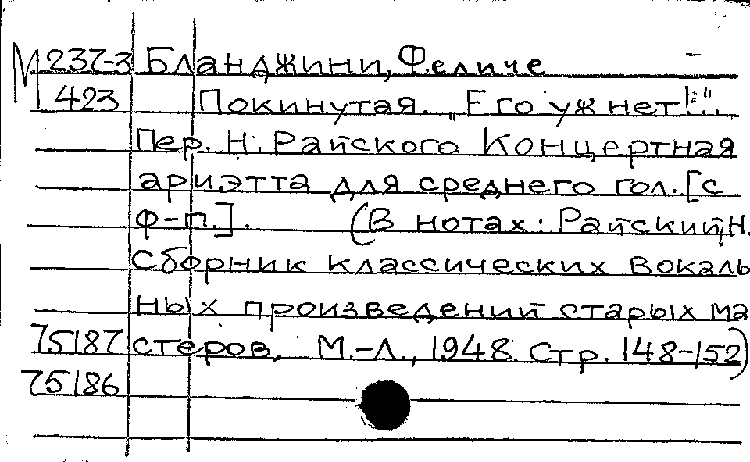 М 237-3 Бланджини, Феличе
423 Покинутая. "Его уж нет!"...
Пер. Н. Райского Концертная
ариэтта для среднего гол. [с
ф-п.]. (В нотах: Райский, Н.
Сборник классических вокаль
ных произведений старых ма
75187 стеров, М.-Л., 1948. Стр. 148-152)
75186